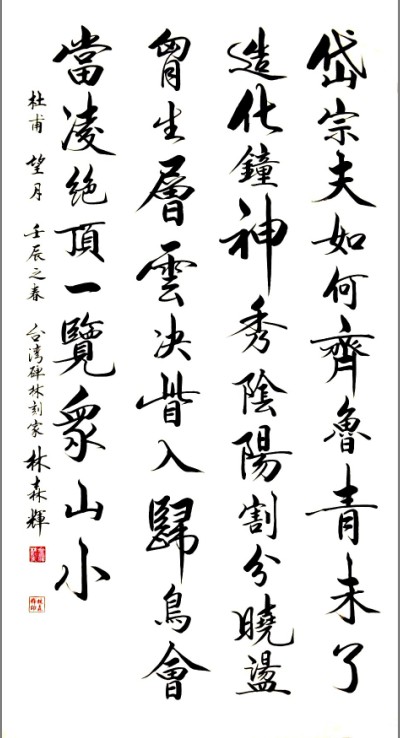 岱宗夫如何齊魯青未了
造化鐘神秀陰陽割分曉盪
胷生層雲決眥入歸鳥會
當凌絶頂一覽眾山小
杜甫 望月 壬辰之春 台湾碑林刻家 林森輝